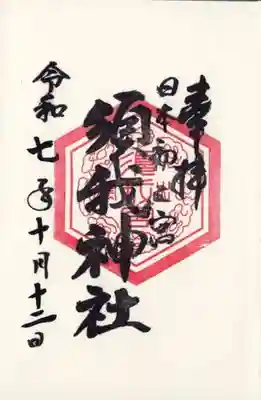 奉拝
日本初之宮
須我神社
令和七年十月十二日